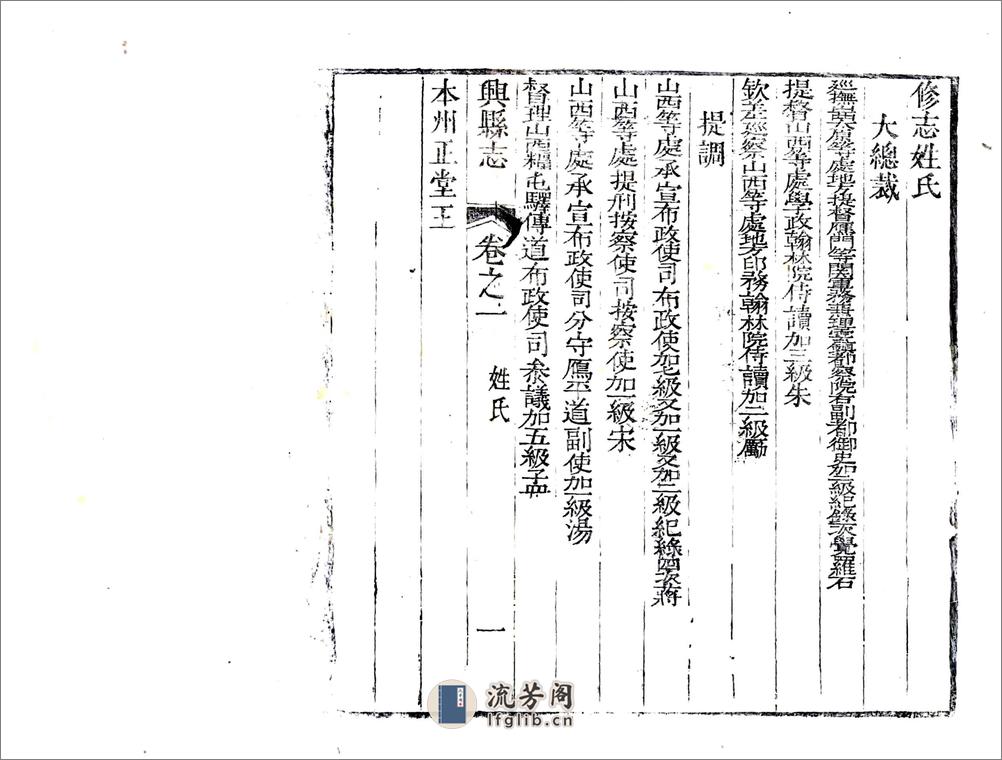 修志姓氏
大總裁
巡撫山西太原等處地方提督雁門等關軍務兼理雲鎮都察院右副都御史加一級紀錄六次覺羅石
提督山西等處學政翰林院侍讀加三級朱
欽差巡察山西等處地方印務翰林院侍讀加二級勵
提調
山西等處承宣布政使司布政使加七級又加一級又加二級紀錄四次蔣
山西等處提刑按察使司按察使加一級宋
山西等處承宣布政使司分守鴈平道副使加一級湯
督理山西糧屯驛傳道布政使司參議加五級孟
興縣志 卷之一 姓氏 一
本州正堂王
流芳阁
lfglib.cn